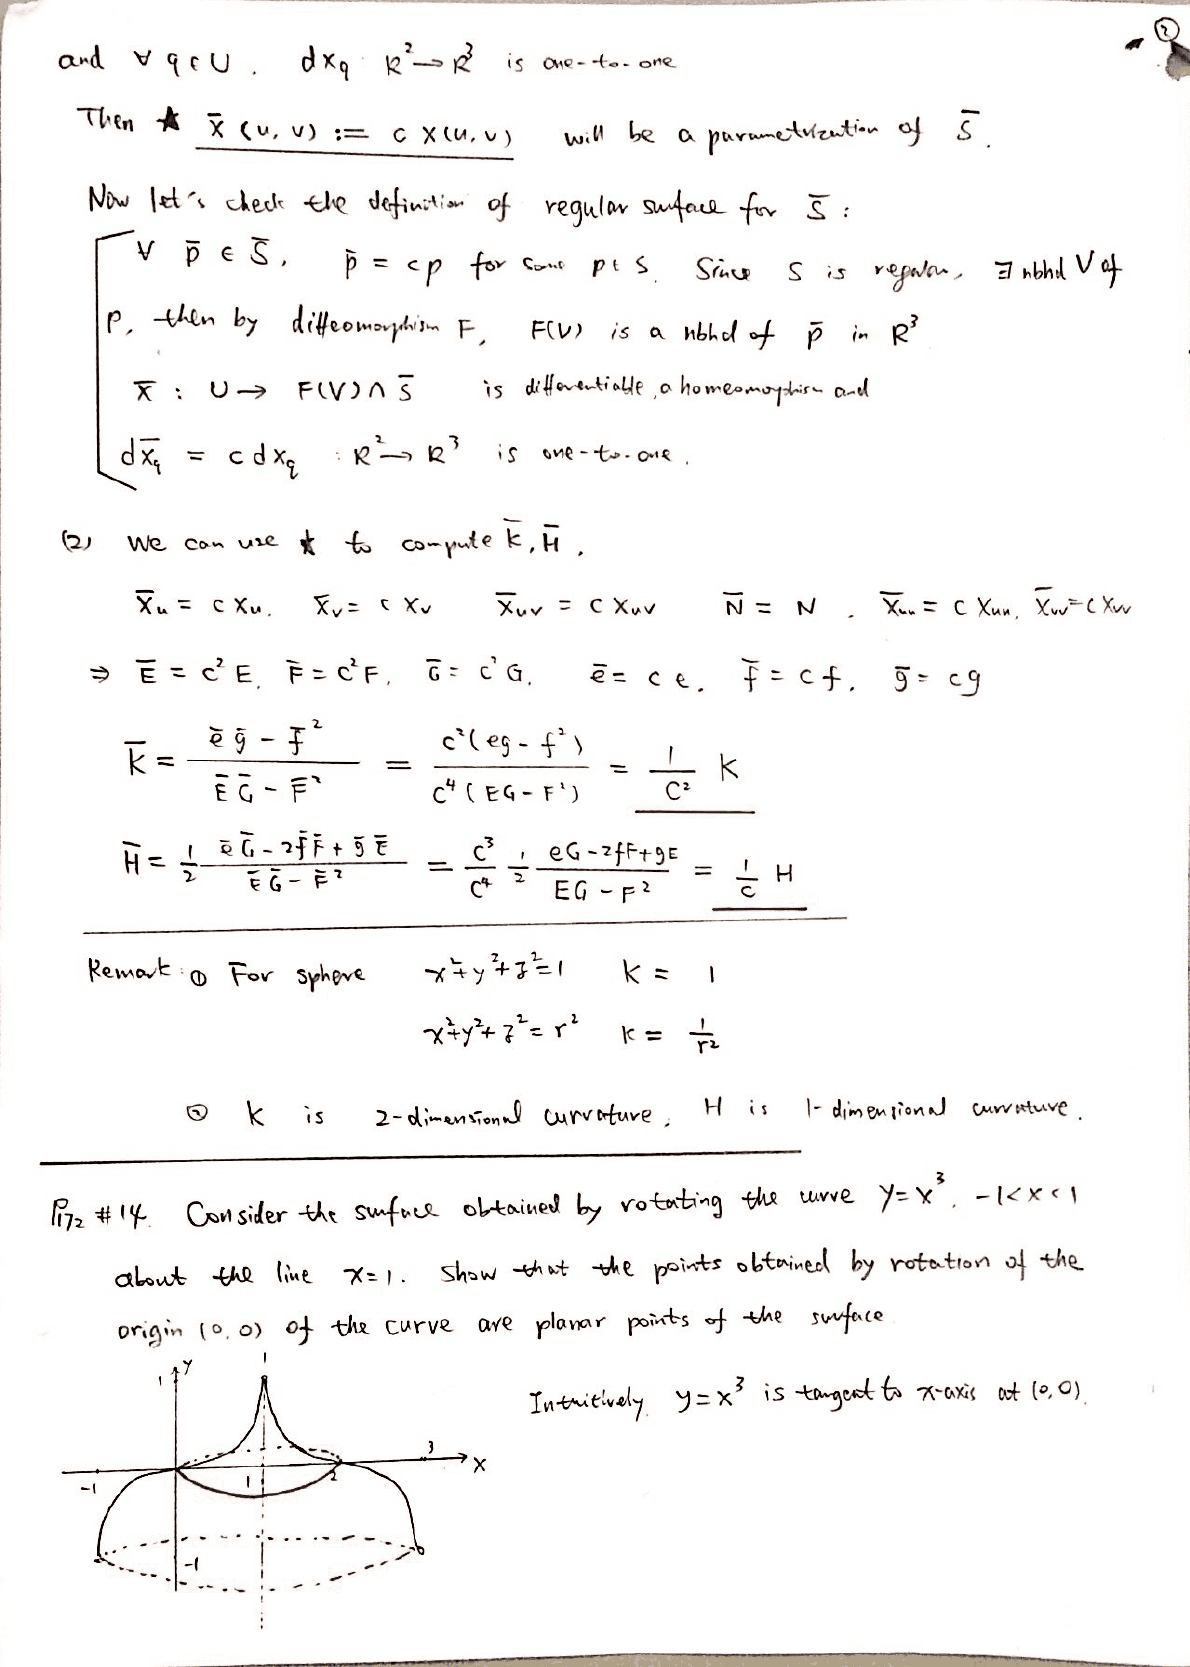 ②
and ∀ q∈U, dx_q R²→R³ is one-to-one
Then ★ x̄(u,v) := c x(u,v) will be a parametrization of S̄.
Now let's check the definition of regular surface for S̄ :
∀ p̄ ∈ S̄, p̄ = cp for some p∈S. Since S is regular, ∃ nbhd V of
p, then by diffeomorphism F, F(V) is a nbhd of p̄ in R³
x̄ : U → F(V)∩S̄ is differentiable, a homeomorphism and
dx̄_q = c dx_q : R²→R³ is one-to-one.
(2) We can use ★ to compute K̄, H̄.
x̄u = c xu, x̄v = c xv x̄uv = c xuv N̄ = N. x̄uu = c xuu, x̄vv = c xvv
⇒ Ē = c²E, F̄ = c²F, Ḡ = c²G, ē = ce, f̄ = cf, ḡ = cg
K̄ = (ēḡ - f̄²)/(ĒḠ - F̄²) = c²(eg - f²)/c⁴(EG - F²) = 1/c² K
H̄ = 1/2 (ēḠ - 2f̄F̄ + ḡĒ)/(ĒḠ - F̄²) = c³/c⁴ 1/2 (eG - 2fF + gE)/(EG - F²) = 1/c H
Remark: ① For sphere x²+y²+z²=1 K = 1
x²+y²+z²=r² K = 1/r²
② K is 2-dimensional curvature, H is 1-dimensional curvature.
P172 #14. Consider the surface obtained by rotating the curve y=x³, -1<x<1
about the line x=1. Show that the points obtained by rotation of the
origin (0,0) of the curve are planar points of the surface
Intuitively, y=x³ is tangent to x-axis at (0,0).
1 y 1
-1 1 2 3 x
-1